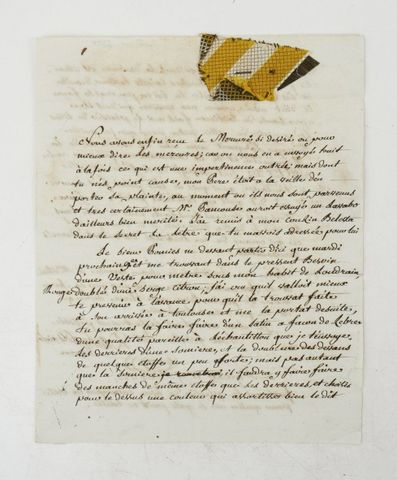 Nous avons enfin reçu le Mercure si desiré ou pour
mieux dire des mercures; car on nous en a envoyé huit
à la fois ce qui est une impertinence outrée mais dont
tu nes point cause, mon Pere étoit a la veille d'en
porter sa plainte, au moment ou ils nous sont parvenus
et tres certainement Mr. auroit essuyé un
d'ailleurs bien merité. J'ai remis à mon Cousin
dans le secret la letre que tu m'avois adressée pour lui
Le bien ne devant partir d'ici que mardi
prochain, et me trouvant dans le present Besoin
d'une Veste pour metre sous mon habit de
Rouge doublés d'une serge citron; j'ai cru qu'il valloit mieux
te prevenir à l'avance pour qu'il la trouvat faite
à son arrivée à toulouse et me la portat desuite,
tu pourras la faire faire d'un Satin a facon de
d'une qualité pareille à l'échantillon que je t'envoye,
les derrieres d'une et la doublure des devans
de quelque etoffe un peu forte; mais pas autant
que la il faudra y faire faire
des manches de même etoffe que les derrieres, et choisis
pour le dessus une couleur qui assortisse bien le dit